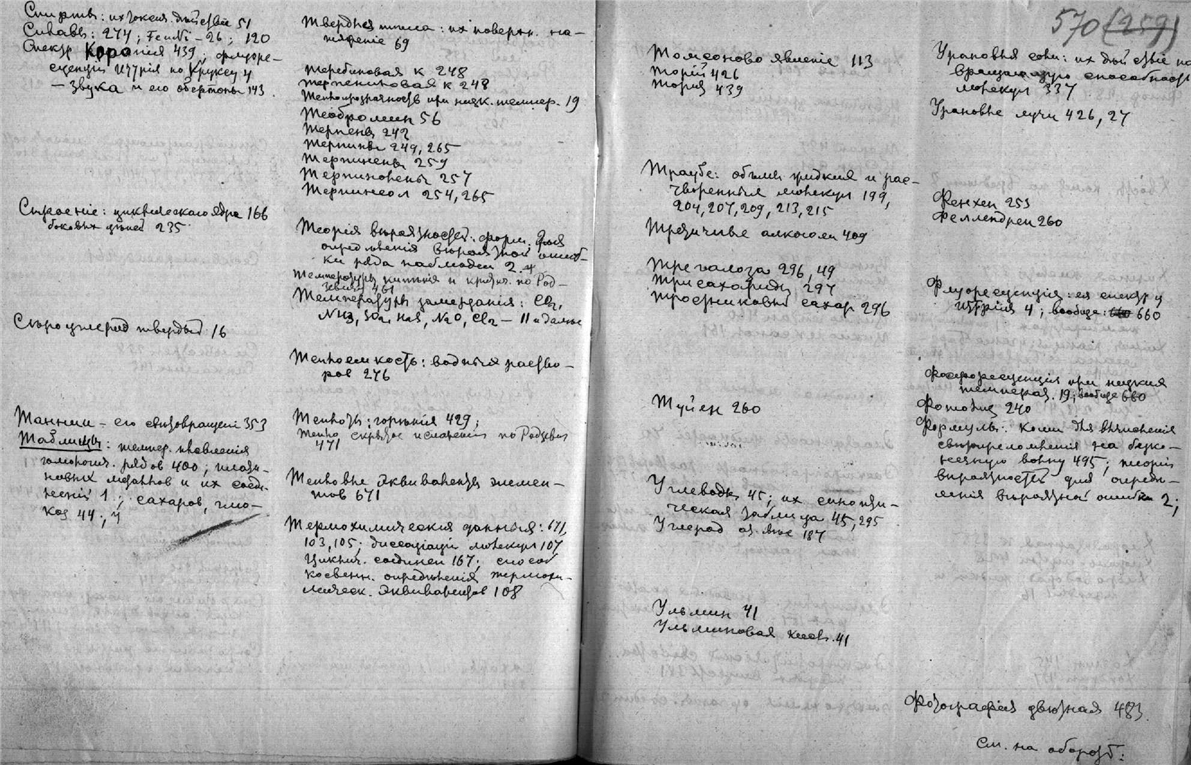 Спирты: их токсич. дѣйствіе 51
Сплавы: 274; 26; 120
Спектр 439; флуоре-
сценціи иттрія по Круксу 4
— звука и его обертоны 143
Строеніе: циклическаго ядра 166
боковых цѣпей 235
Сѣроуглерод твердый 16
Таннин — его свѣтовращеніе 353
Таблицы: темпер. плавленія
гомологич. рядов 400;
металлов и их соеди-
неній 1; сахаров, глю-
коз 44;
Твердыя тѣла: их поверхн. на-
тяженіе 69
Теребиновая к 248
Терпениловая к 248
Теплопрозрачность при низк. темпер. 19
Теобромин 56
Терпены 242
Терпины 249, 265
Терпинены 259
Терпинолены 257
Терпинеол 254, 265
Теорія вѣроятностей: форм. для
опредѣленія вѣроятной ошиб-
ки ряда наблюден 2
Температуры кипѣнія и критич. по Род-
461
Температуры замерзанія: Cl₂,
NH₃, SO₂, H₂S, N₂O, — 11 и далѣе
Теплоемкость: водных раство-
ров 276
Теплоты: горѣнія 429;
по Роджерсу
471
Тепловые эквиваленты элемен-
тов 671
Термохимическія данныя: 671,
103, 105; диссоціаціи молекул 107
циклич. соединен 167; способ
косвенн. опредѣленія термохи-
мическ. эквивалентов 108
570 (259)
Томсоново явленіе 113
Торій 426
Торія 439
Траубе: объемы жидких и рас-
творенных молекул 199,
204, 207, 209, 213, 215
Третичные алкоголи 409
Трегалоза 296, 49
Трисахариды 297
Тростниковый сахар 296
Туйен 260
Углеводы 45; их синопти-
ческая таблица 45, 295
Углерод 187
Ульмин 41
Ульминовая кисл. 41
Урановыя соли: их дѣйствіе на
вращающую способность
молекул 337
Урановые лучи 426, 27
Фенхен 253
Фелландрен 260
Флуоресценція: ея спектр у
иттрія 4; вообще: 660
Фосфоресценція при низких
температ. 19; вообще 660
Фототие 240
Формулы: Коши для вычисленія
свѣтопреломленія на безко-
нечную волну 495; теоріи
вѣроятностей для опредѣ-
ленія вѣроятной ошибки 2;
Фотографія цвѣтная 483
См. на оборотѣ: